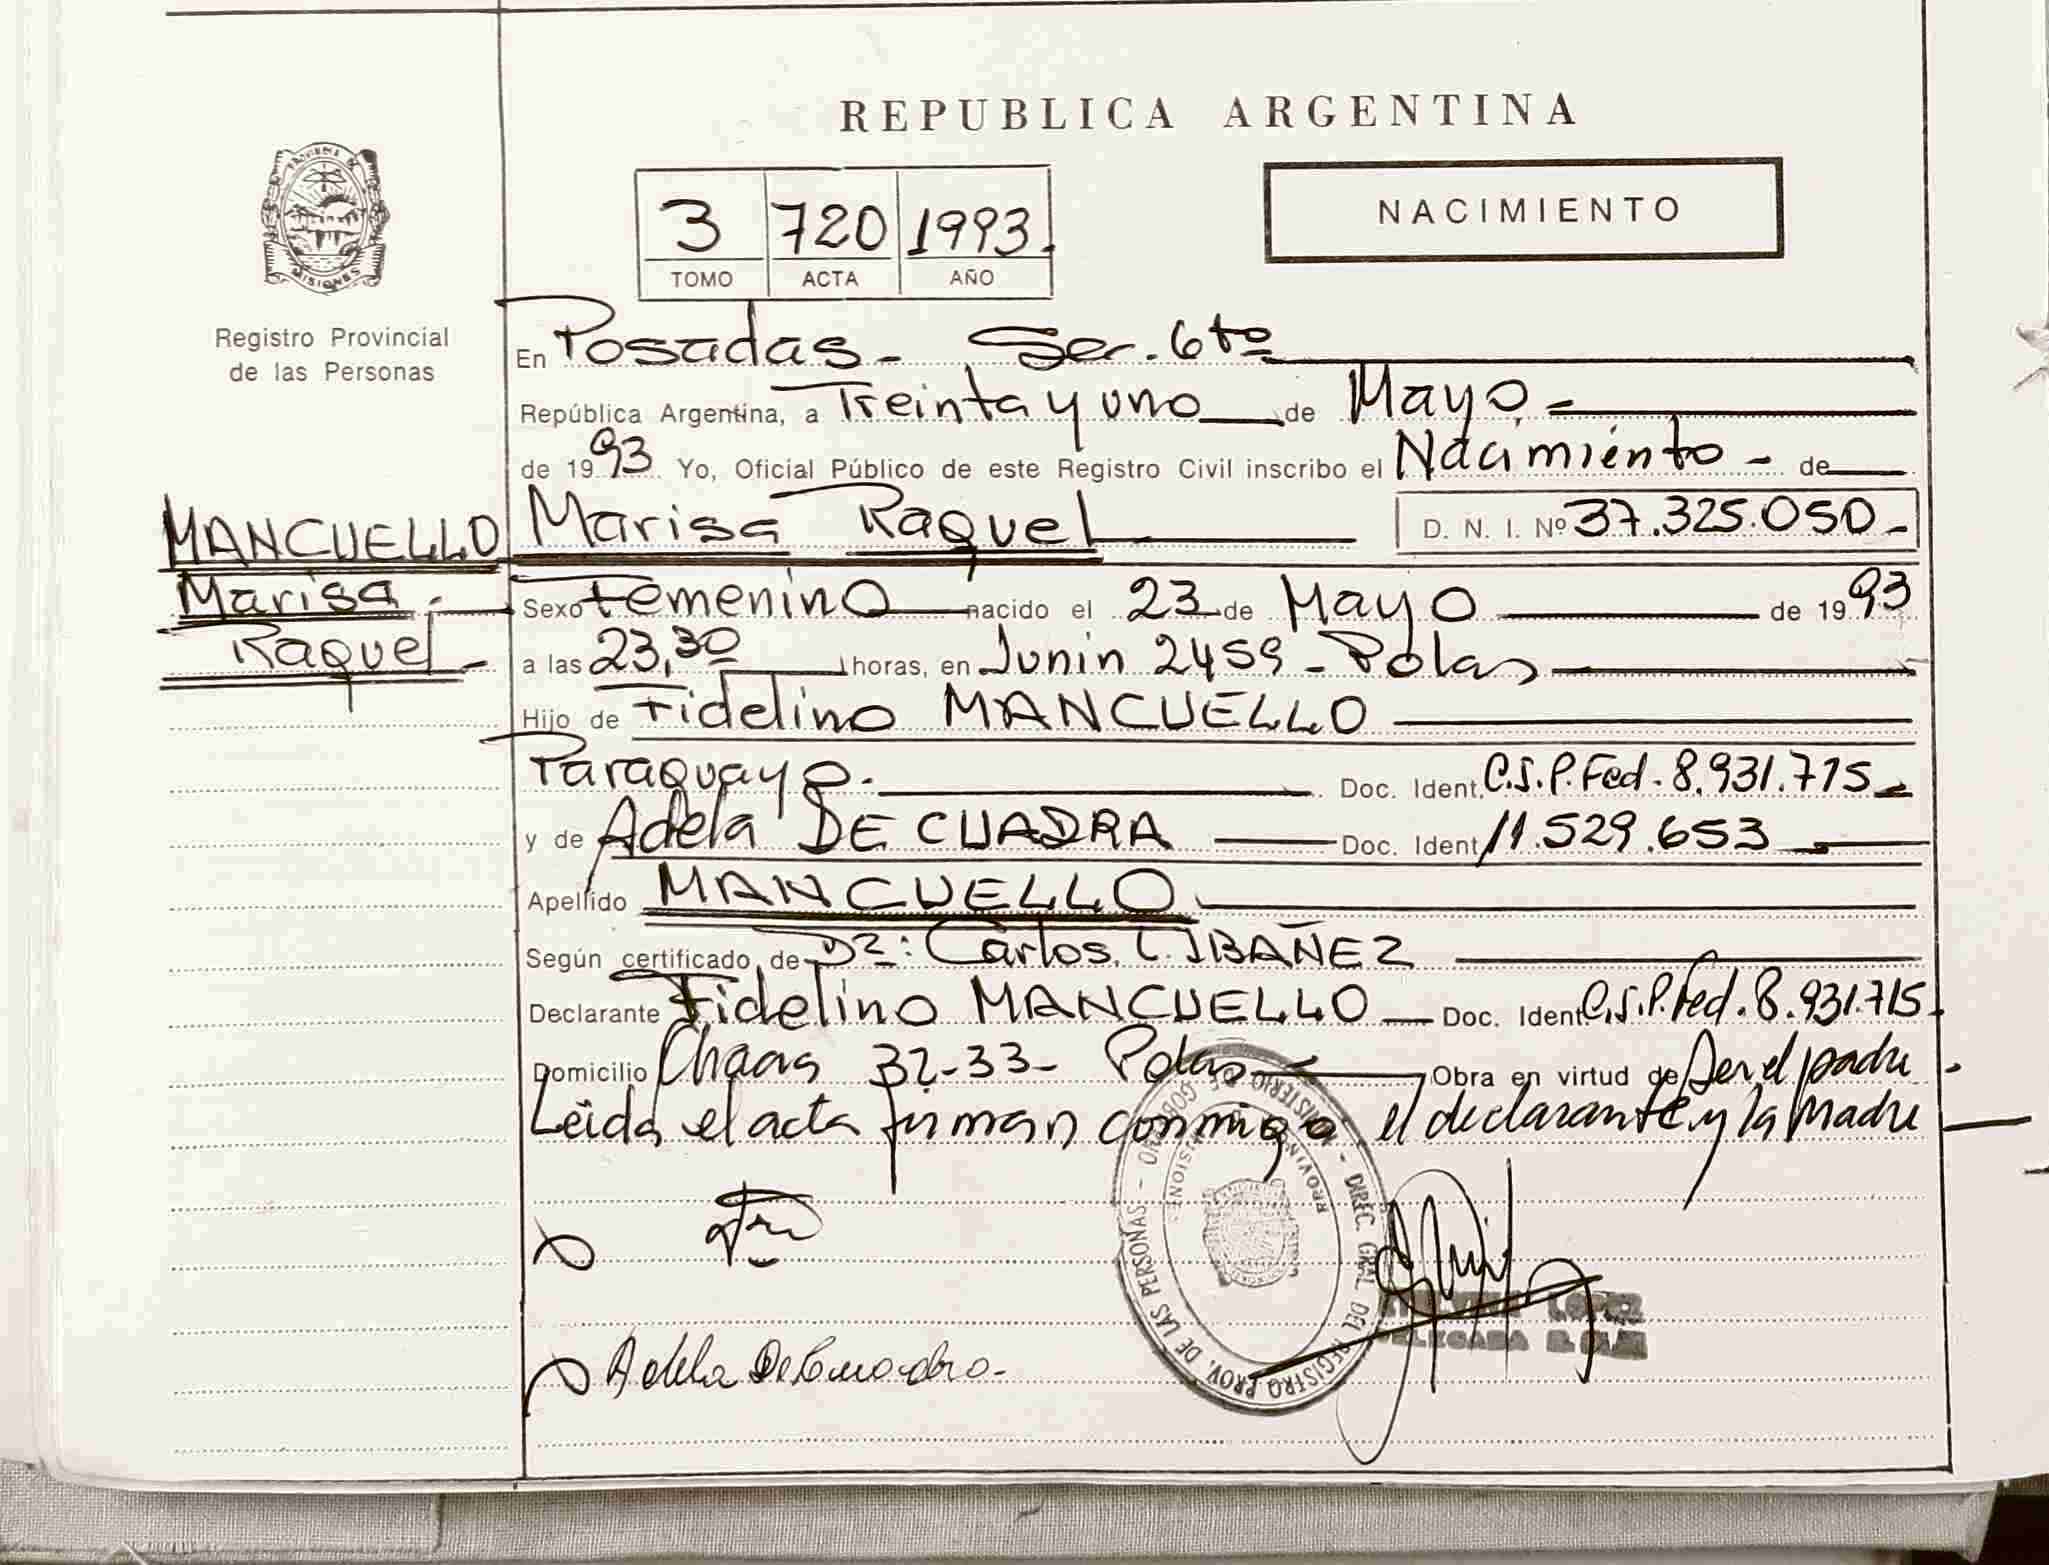 REPUBLICA ARGENTINA
PROVINCIA DE MISIONES
Registro Provincial
de las Personas
3 720 1993.
TOMO ACTA AÑO
NACIMIENTO
En Posadas - Sec. 6to
República Argentina, a Treinta y uno de Mayo -
de 1993 Yo, Oficial Público de este Registro Civil inscribo el Nacimiento - de
MANCUELLO Marisa Raquel D. N. I. Nº 37.325.050 -
Marisa -
Raquel -
Sexo Femenino nacido el 23 de Mayo de 1993
a las 23,30 horas, en Junin 2459 - Pdas
Hijo de Fidelino MANCUELLO
Paraguayo. Doc. Ident. C.I.P.Fed. 8.931.715
y de Adela DE CUADRA Doc. Ident. 11.529.653
Apellido MANCUELLO
Según certificado de Dr: Carlos L. IBAÑEZ
Declarante Fidelino MANCUELLO Doc. Ident. C.I.P.Fed. 8.931.715
Domicilio Chacra 32-33 - Pdas Obra en virtud de Ser el padre -
Leida el acta firman conmigo el declarante y la Madre
Adela De Cuadra -
MINISTERIO DE GOBIERNO - DIREC. GRAL. DEL REGISTRO PROV. DE LAS PERSONAS -
PROVINCIA DE MISIONES
LOPEZ
DELEGADA